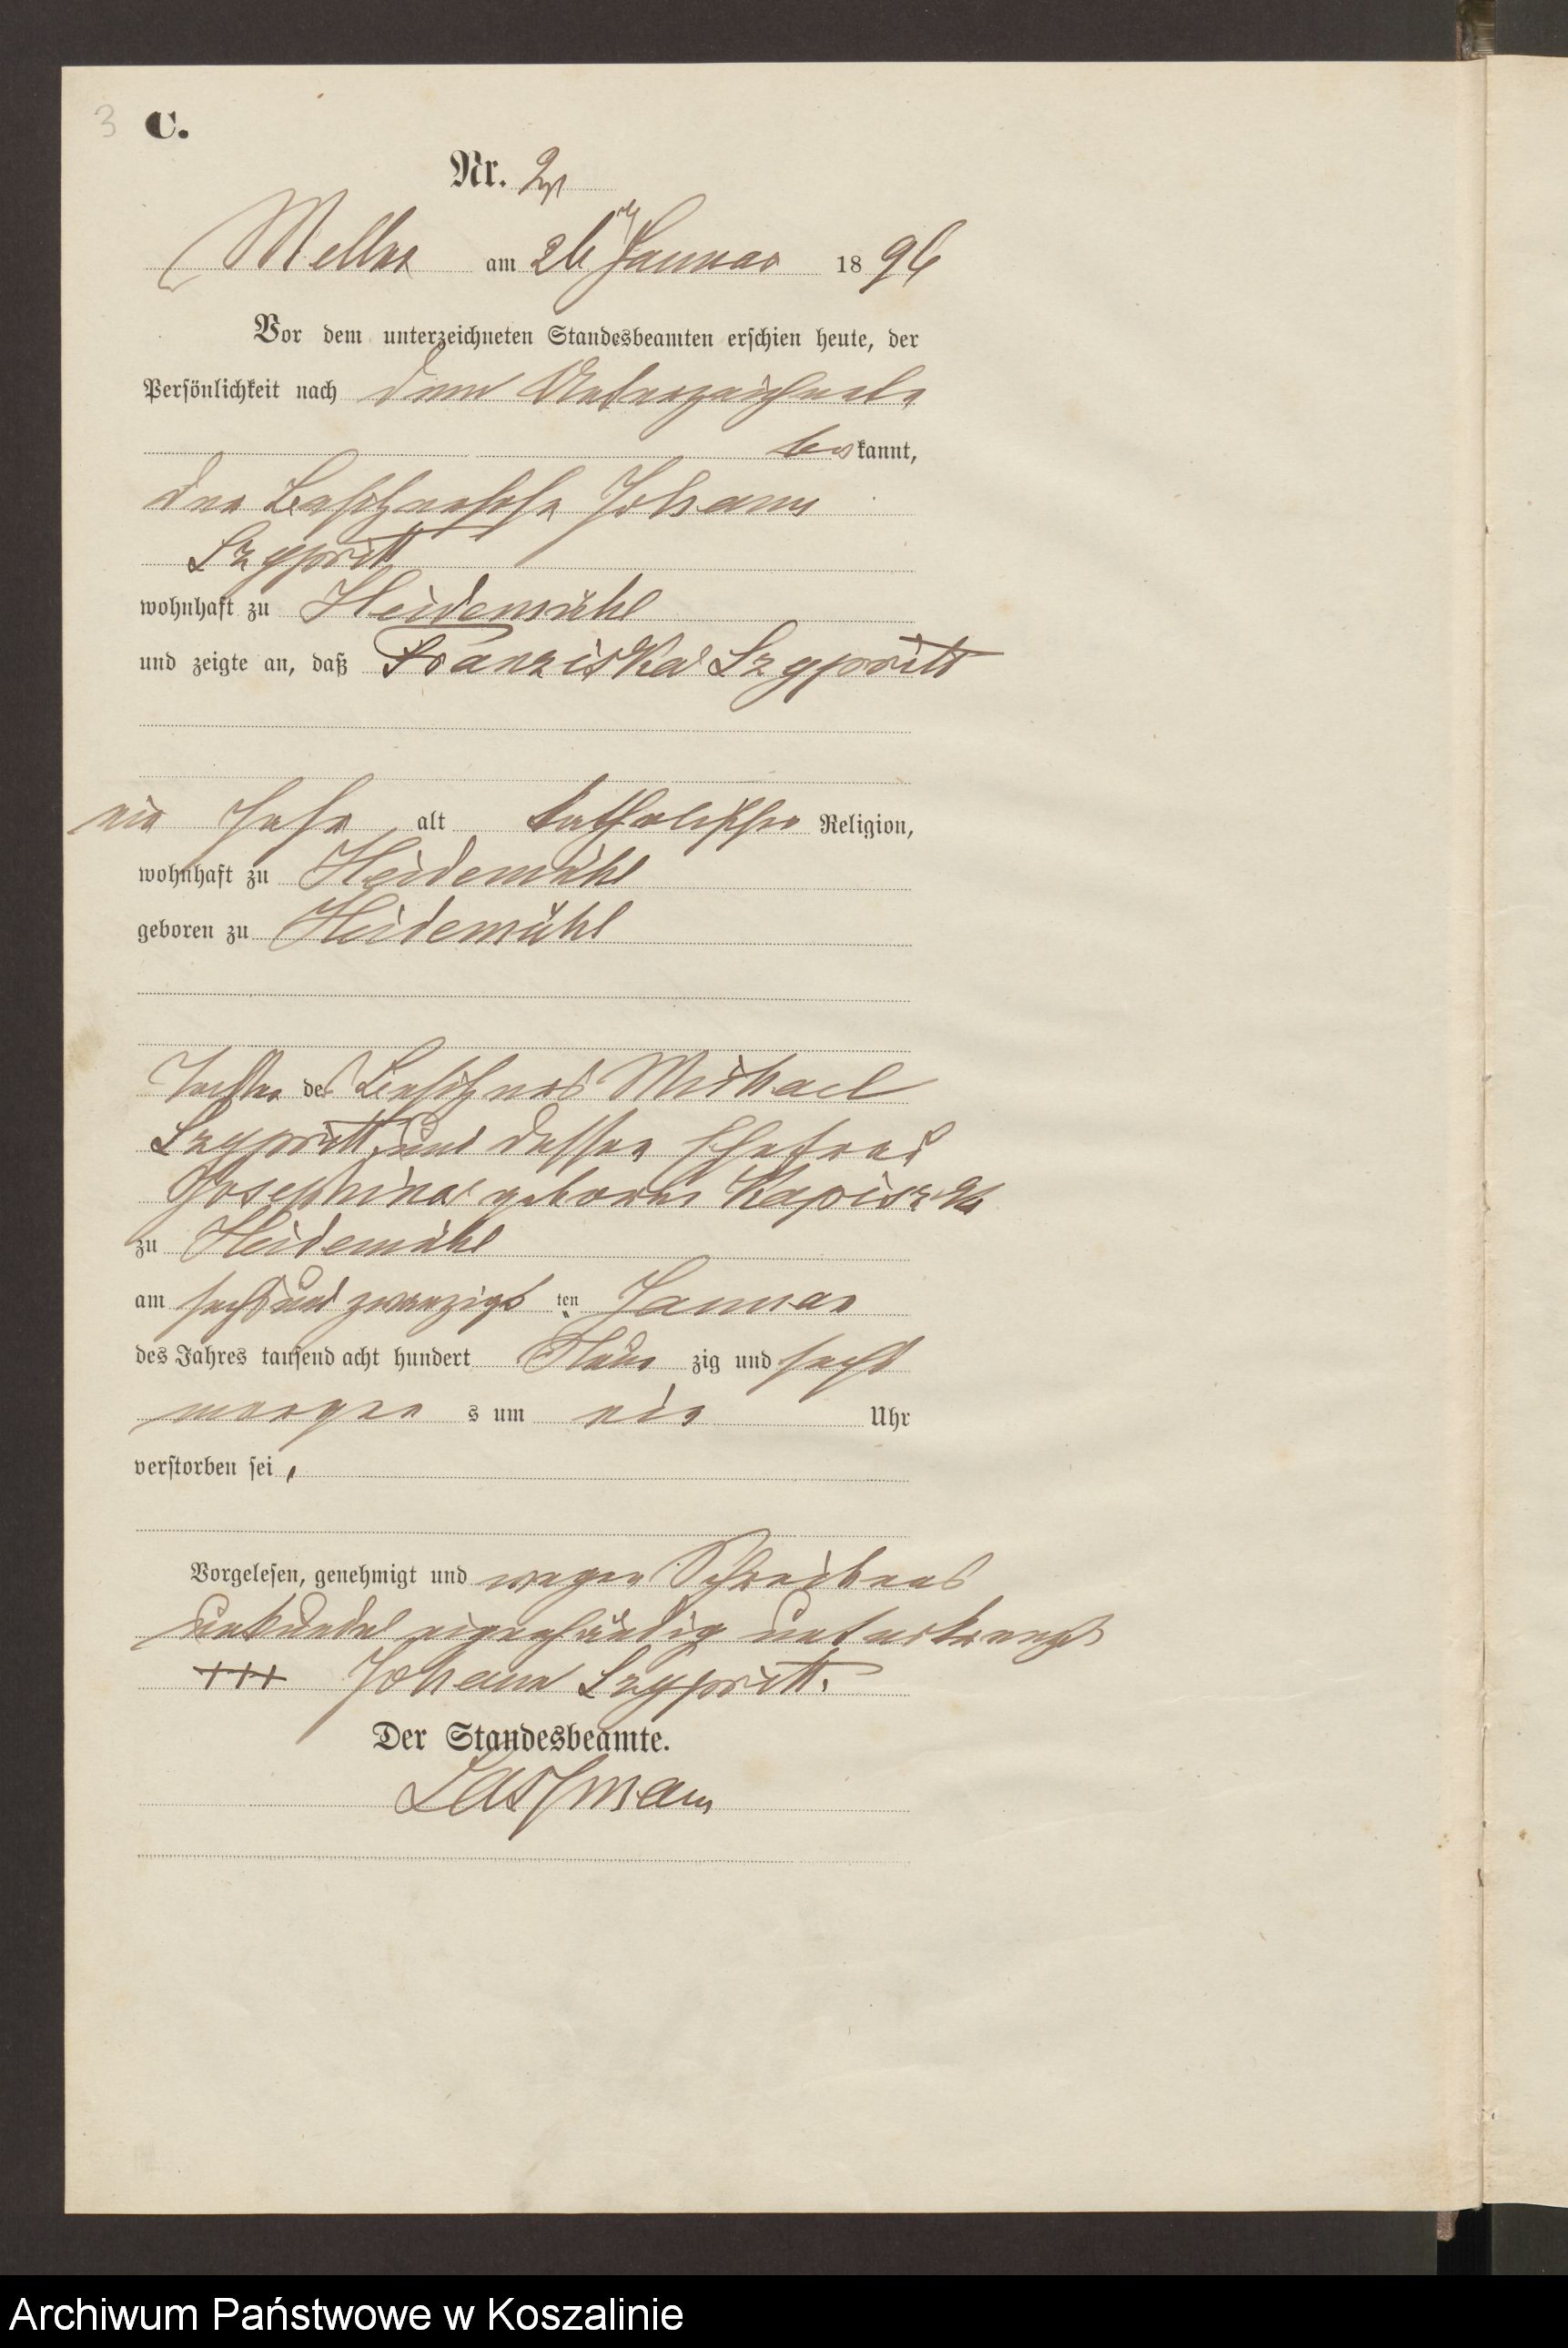 3 C.
Nr. 2
am 26 Januar 1896
Vor dem unterzeichneten Standesbeamten erschien heute, der
Persönlichkeit nach dem Unterzeichneten
bekannt,
der Johann
Szypritt
wohnhaft zu Heidemühl
und zeigte an, daß Franziska Szypritt
ein Jahr alt katholischer Religion,
wohnhaft zu Heidemühl
geboren zu Heidemühl
Tochter des Besitzers Michael
Szypritt und dessen Ehefrau
Josephina geborne
zu Heidemühl
am sechsundzwanzigs ten Januar
des Jahres tausend acht hundert Neun zig und sechs
morgen s um ein Uhr
verstorben sei,
Vorgelesen, genehmigt und wegen Schreibens
unkunde eigenhändig unterkreuzt
+++ Johann Szypritt.
Der Standesbeamte.
Archiwum Państwowe w Koszalinie